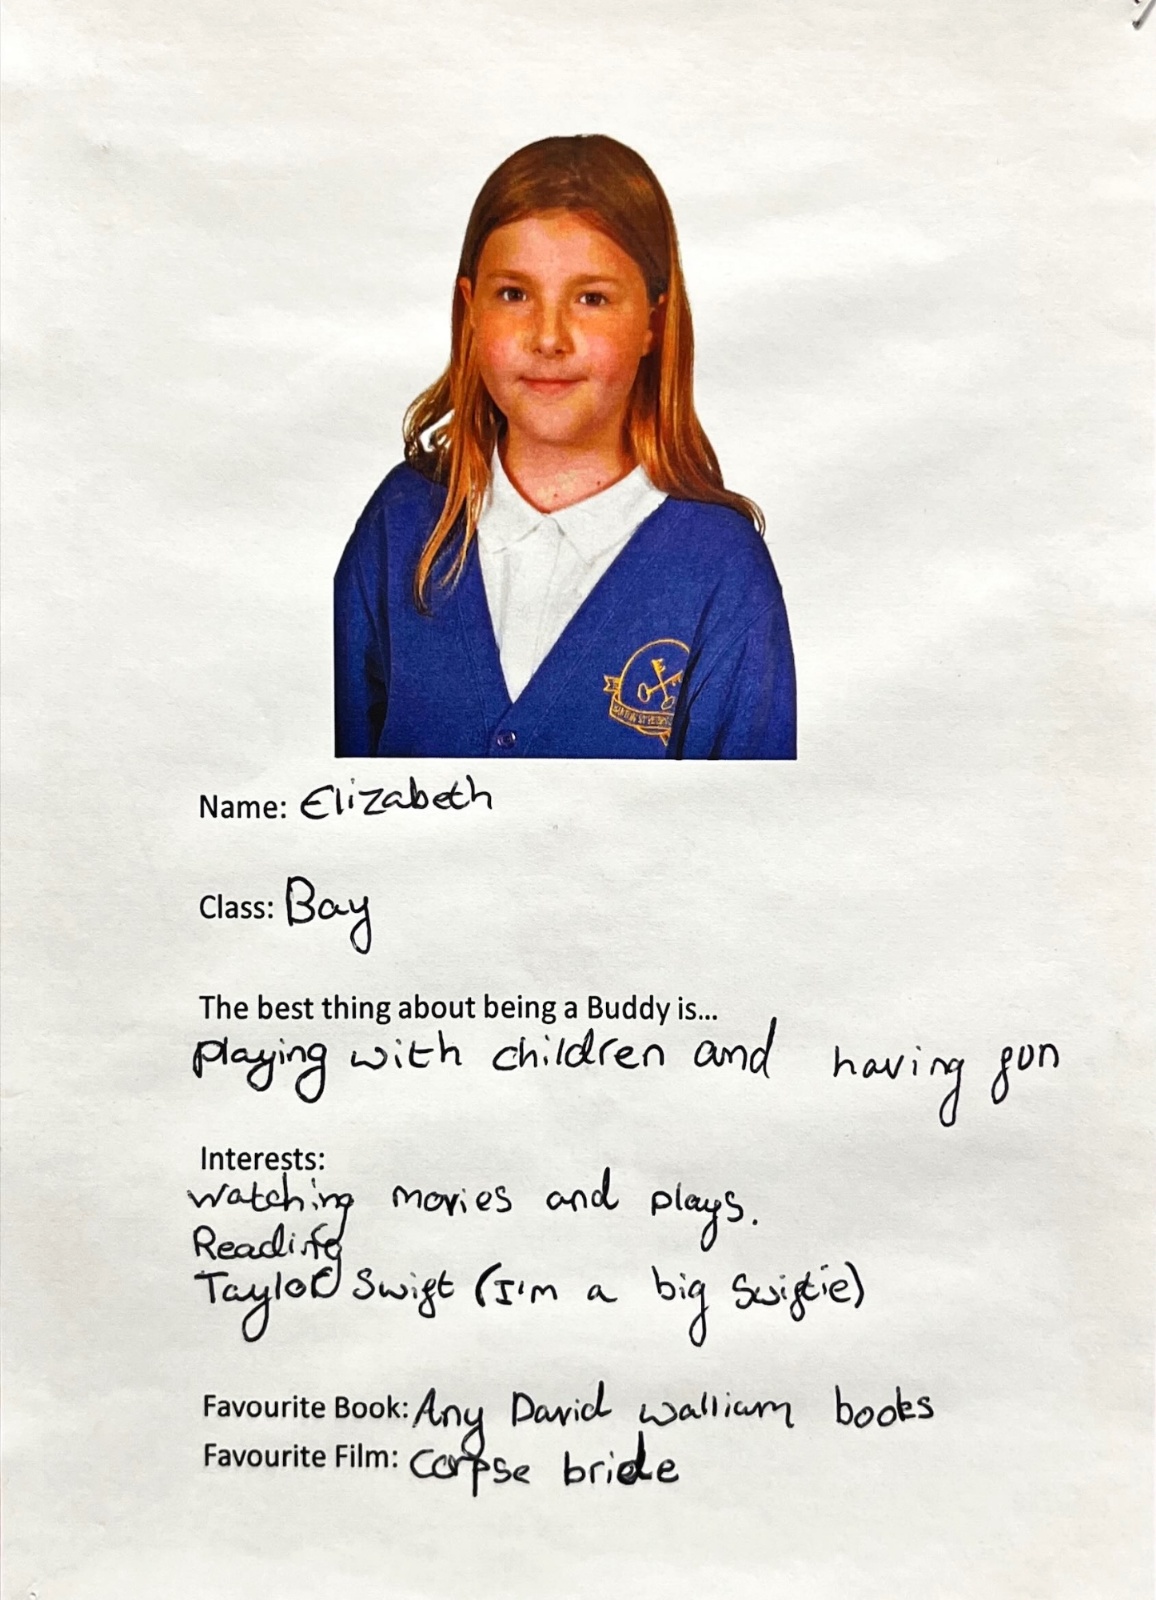 Name: Elizabeth
Class: Bay
The best thing about being a Buddy is...
playing with children and having fun
Interests:
watching movies and plays.
Reading
Taylor Swift (I'm a big Swiftie)
Favourite Book: Any David walliam books
Favourite Film: corpse bride